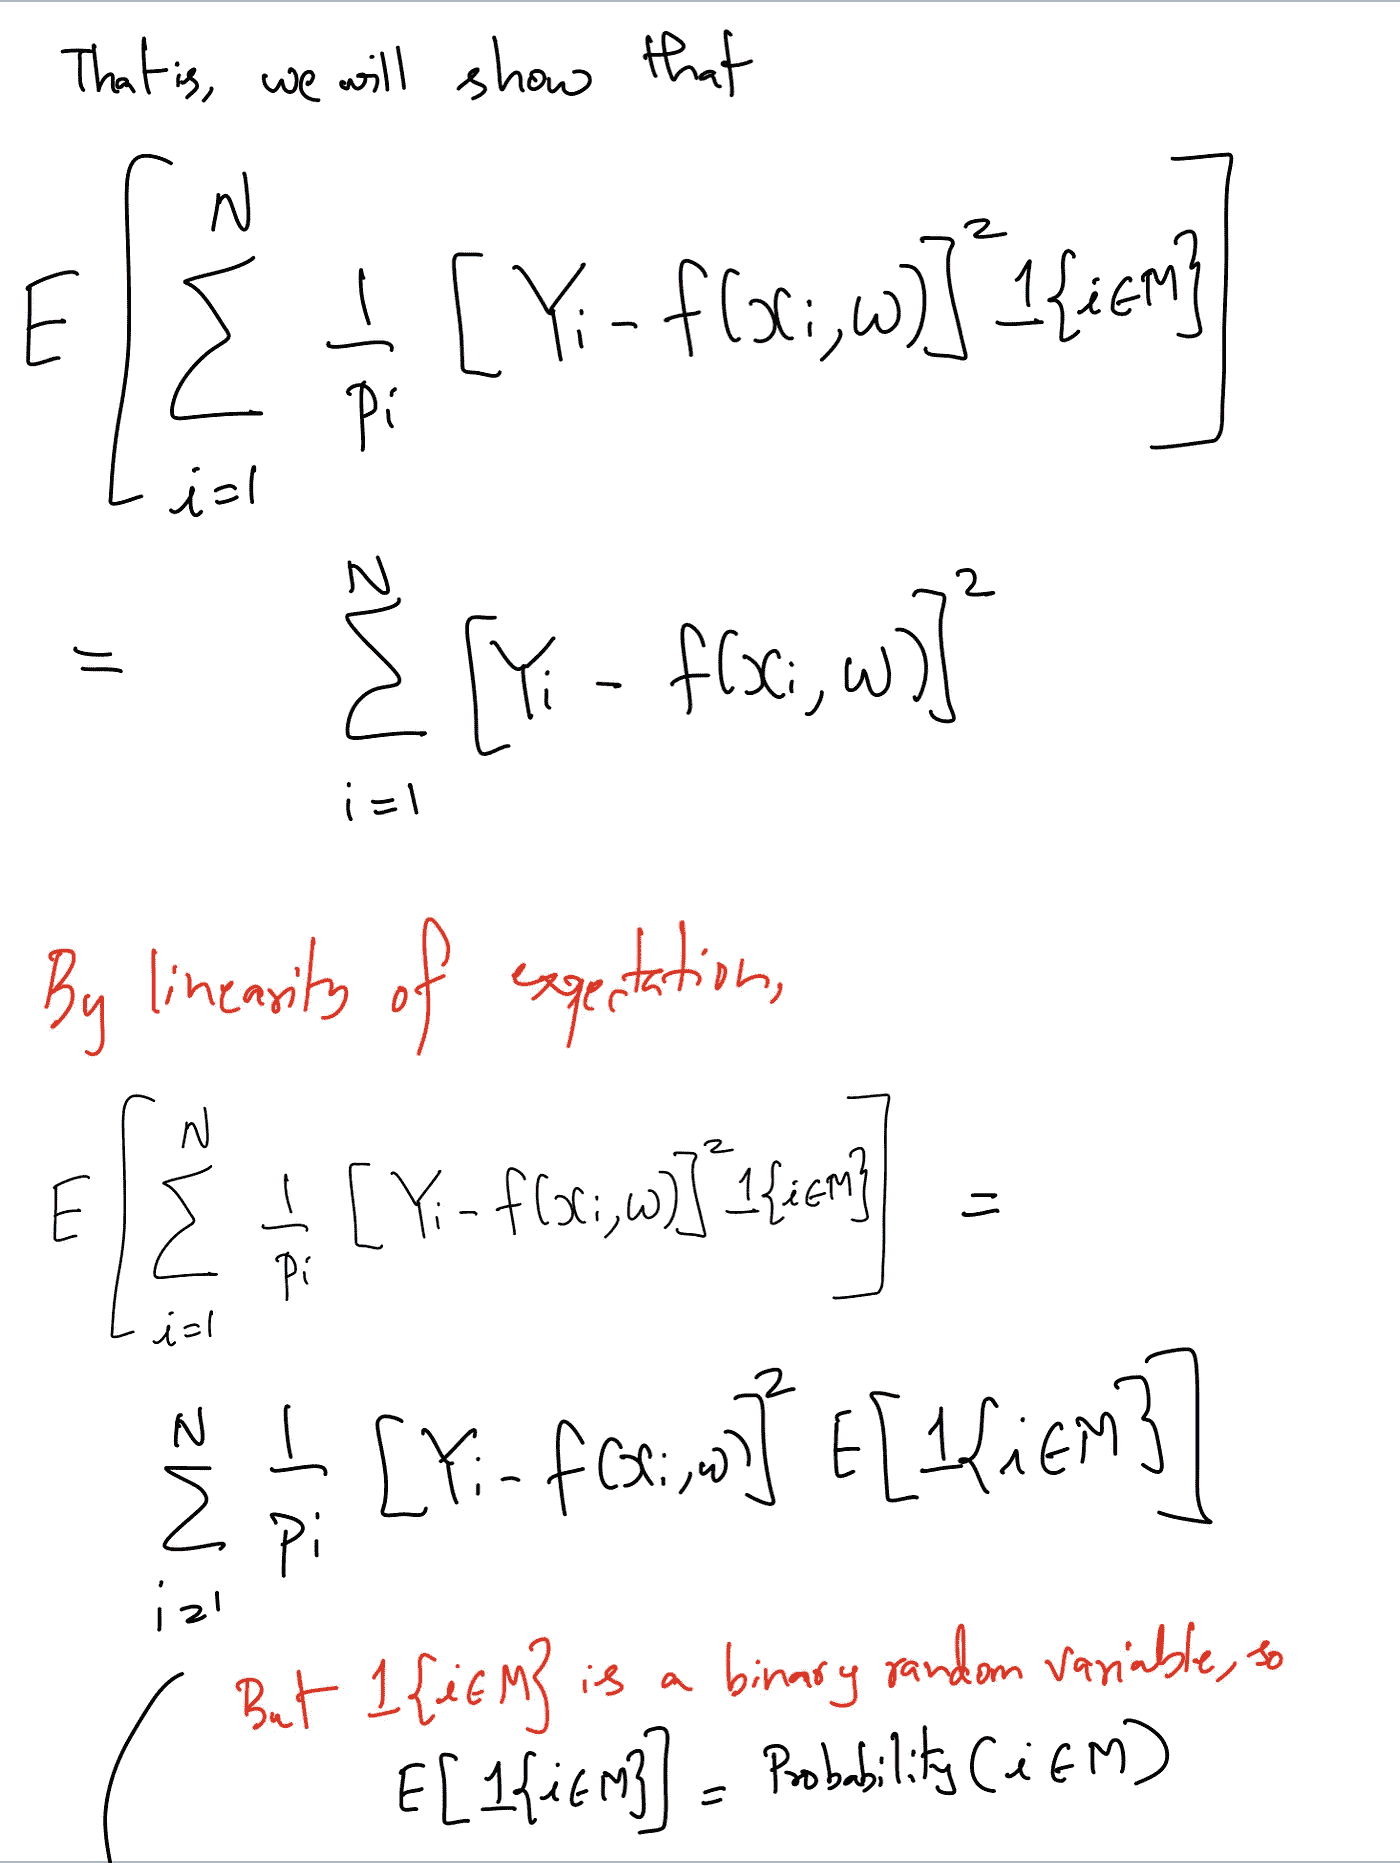 That is, we will show that
E [ \sum_{i=1}^{N} \frac{1}{p_i} [Y_i - f(x_i, w)]^2 1{i ∈ M} ]
= \sum_{i=1}^{N} [Y_i - f(x_i, w)]^2
By linearity of expectation,
E [ \sum_{i=1}^{N} \frac{1}{p_i} [Y_i - f(x_i, w)]^2 1{i ∈ M} ] =
\sum_{i=1}^{N} \frac{1}{p_i} [Y_i - f(x_i, w)]^2 E[1{i ∈ M}]
But 1{i ∈ M} is a binary random variable, so
E[1{i ∈ M}] = Probability(i ∈ M)